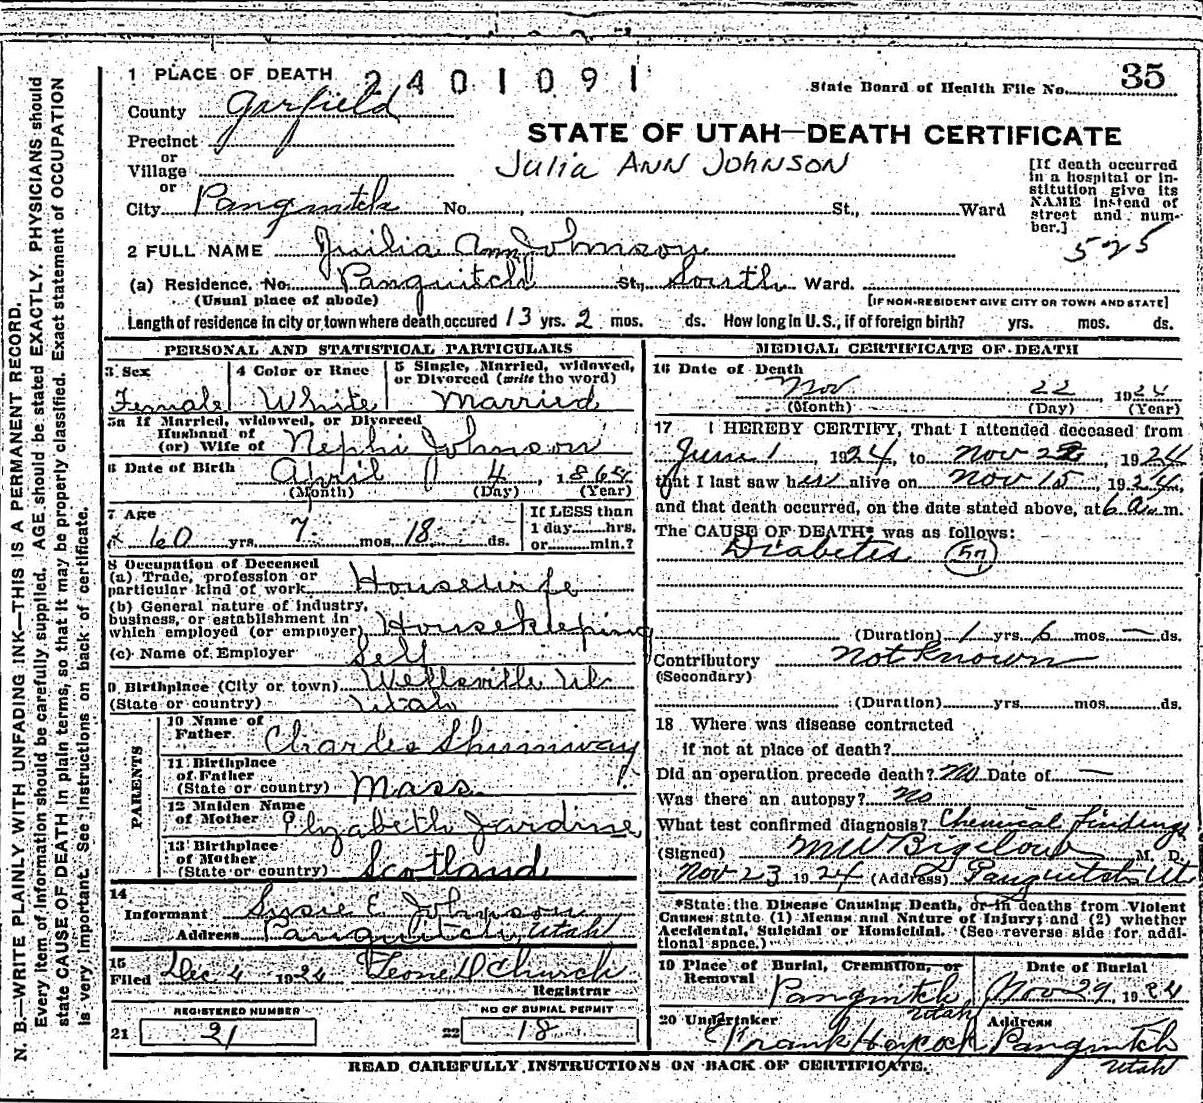 1 PLACE OF DEATH 2401091
State Board of Health File No. 35
County Garfield
STATE OF UTAH—DEATH CERTIFICATE
Precinct
or
Village
or
Julia ANN JOHNSON
[If death occurred in a hospital or institution give its NAME instead of street and number.]
City Panguitch No. , St., Ward
525
2 FULL NAME Julia Ann Johnson
(a) Residence. No. Panguitch St., South Ward.
(Usual place of abode) [IF NON-RESIDENT GIVE CITY OR TOWN AND STATE]
Length of residence in city or town where death occured 13 yrs. 2 mos. ds. How long in U.S., if of foreign birth? yrs. mos. ds.
PERSONAL AND STATISTICAL PARTICULARS
3 Sex 4 Color or Race 5 Single, Married, widowed, or Divorced (write the word)
Female White Married
5a If Married, widowed, or Divorced
Husband of
(or) Wife of Nephi Johnson
6 Date of Birth April 4, 1864
(Month) (Day) (Year)
7 Age If LESS than
60 yrs. 7 mos. 18 ds. 1 day hrs. or min.?
8 Occupation of Deceased
(a) Trade, profession or
particular kind of work Housewife
(b) General nature of industry,
business, or establishment in
which employed (or employer) Housekeeping
(c) Name of Employer Self
9 Birthplace (City or town) Wellsville Ut
(State or country) Utah
PARENTS
10 Name of
Father Charles Shumway
11 Birthplace
of Father
(State or country) Mass.
12 Maiden Name
of Mother Elyzabeth Jardine
13 Birthplace
of Mother
(State or country) Scotland
14
Informant Susie E. Johnson
Address Panguitch, Utah
15
Filed Dec 4 1924 Leone D Church
Registrar
REGISTERED NUMBER NO OF BURIAL PERMIT
21 21 22 18
MEDICAL CERTIFICATE OF DEATH
16 Date of Death
Nov 22 1924
(Month) (Day) (Year)
17 I HEREBY CERTIFY, That I attended deceased from
June 1, 1924, to Nov 22, 1924
that I last saw her alive on Nov 15, 1924,
and that death occurred, on the date stated above, at 6 a.m.
The CAUSE OF DEATH* was as follows:
Diabetes 57
(Duration) 1 yrs. 6 mos. — ds.
Contributory Not Known
(Secondary)
(Duration) yrs. mos. ds.
18 Where was disease contracted
if not at place of death?
Did an operation precede death? No Date of —
Was there an autopsy? no
What test confirmed diagnosis? Chemical findings
(Signed) MW Bigelow M. D.
Nov 23 1924 (Address) Panguitch Ut
*State the Disease Causing Death, or in deaths from Violent
Causes state (1) Means and Nature of Injury; and (2) whether
Accidental, Suicidal or Homicidal. (See reverse side for addi-
tional space.)
19 Place of Burial, Cremation, or Removal Date of Burial
Panguitch Utah Nov 29 1924
20 Undertaker Address
Frank Haycock Panguitch Utah
READ CAREFULLY INSTRUCTIONS ON BACK OF CERTIFICATE.
N. B.—WRITE PLAINLY WITH UNFADING INK—THIS IS A PERMANENT RECORD.
Every item of information should be carefully supplied. AGE should be stated EXACTLY. PHYSICIANS should
state CAUSE OF DEATH in plain terms, so that it may be properly classified. Exact statement of OCCUPATION
is very important. See instructions on back of certificate.